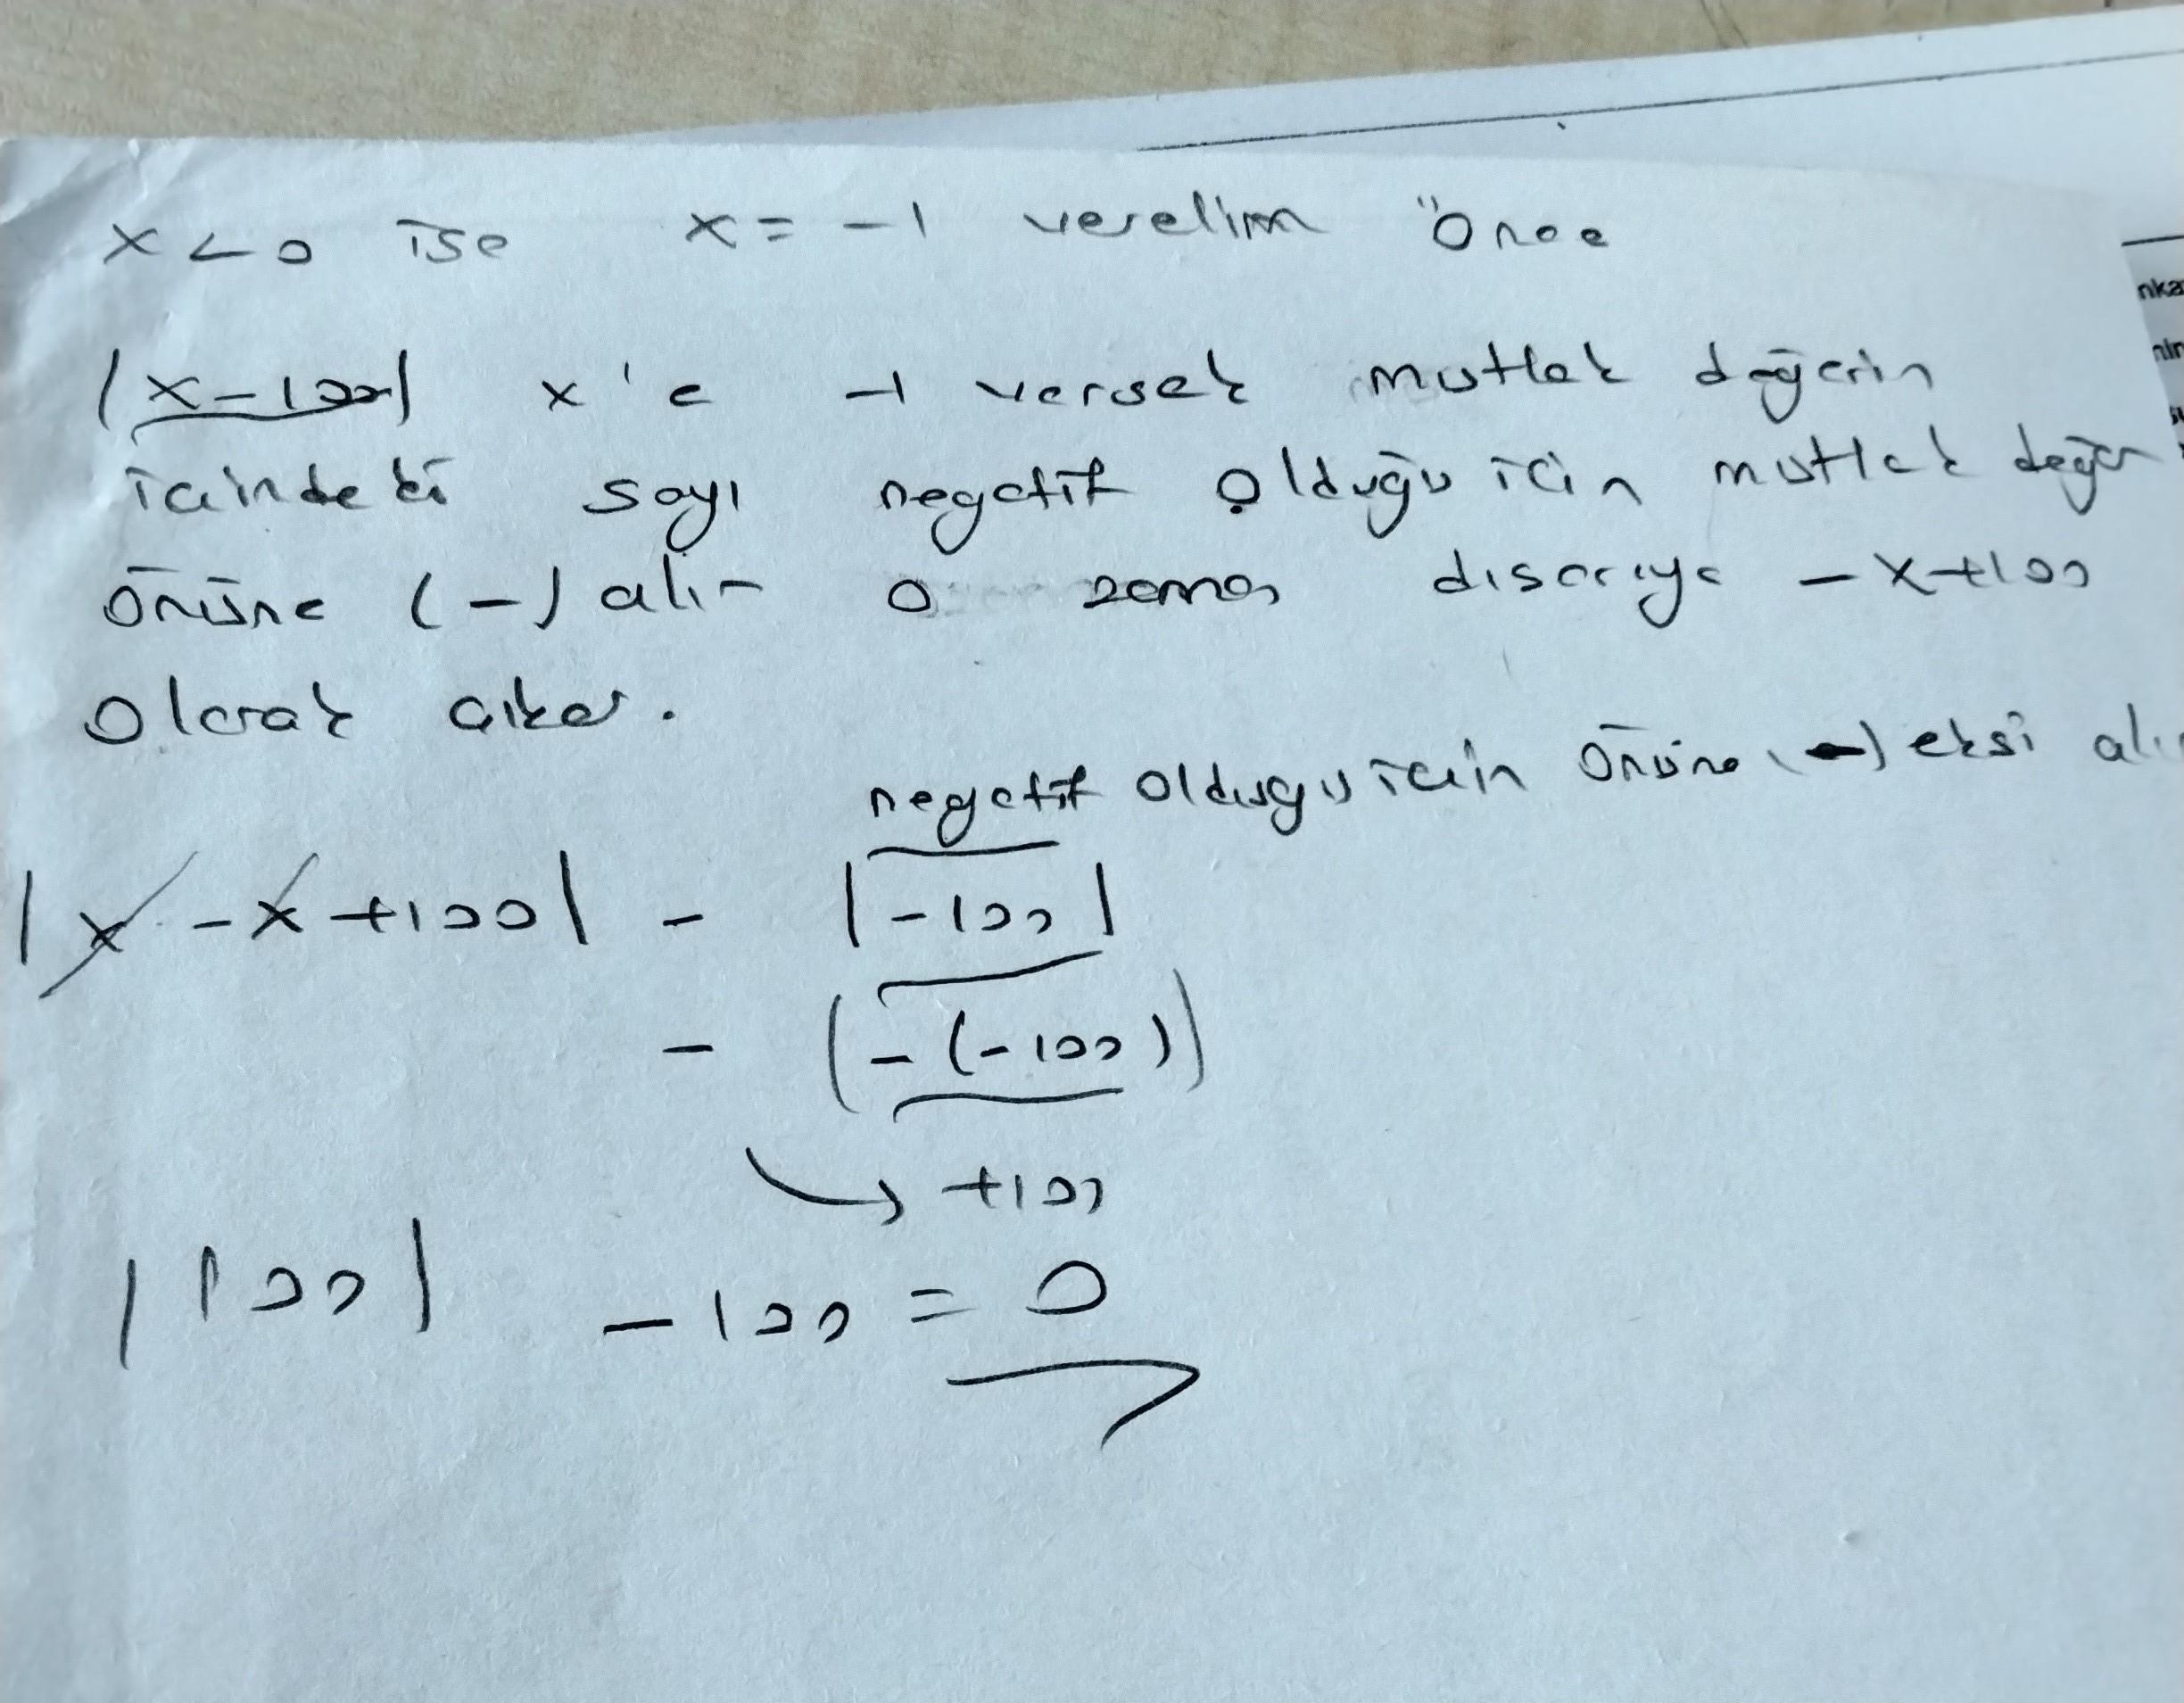 x<0 ise x = -1 verelim önce
|x-100| x'e -1 versek mutlak değerin
içindeki sayı negatif olduğu için mutlak değer
önüne (-) alır o zaman dışarıya -x+100
olarak çıkar.
negatif olduğu için önüne (-) eksi alır
|x - x +100| - |-100|
- (-(-100))
→ +100
|100| -100 = 0